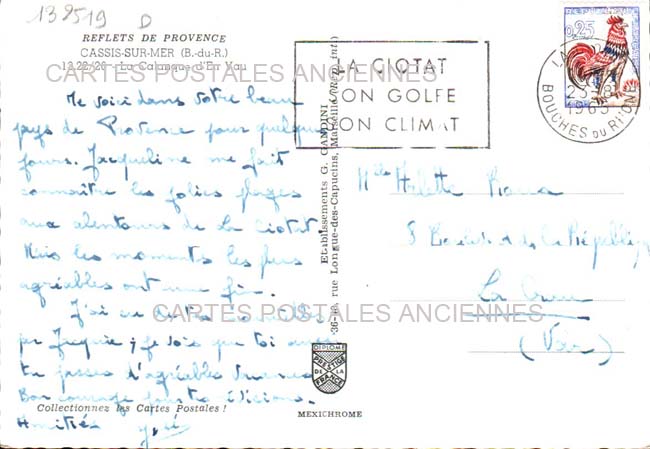 139519 D
REFLETS DE PROVENCE
CASSIS-SUR-MER (B.-du-R.)
13.22/26 - La Calanque d'En Vau
CARTES POSTALES ANCIENNES
Me voici dans votre beau
pays de Provence pour quelques
jours. Jacqueline me fait
connaître les jolies plages
aux alentours de La Ciotat.
Mais les moments les plus
agréables ont une fin.
J'ai eu
par Jacquie, je sais que toi aussi
tu passes d'agréables vacances
Bon courage
Collectionnez les Cartes Postales !
Amitiés
Etablissements G. GANDINI
36-38, rue Longue-des-Capucins, Marseille (Rep. int.)
DIPLOME
PRESTIGE
DE LA
FRANCE
MEXICHROME
LA CIOTAT
SON GOLFE
SON CLIMAT
0,25
LA CIOTAT
23-8
1963
BOUCHES DU RHONE
Mlle Arlette
8 de la République
La Crau
(Var)
CARTES POSTALES ANCIENNES